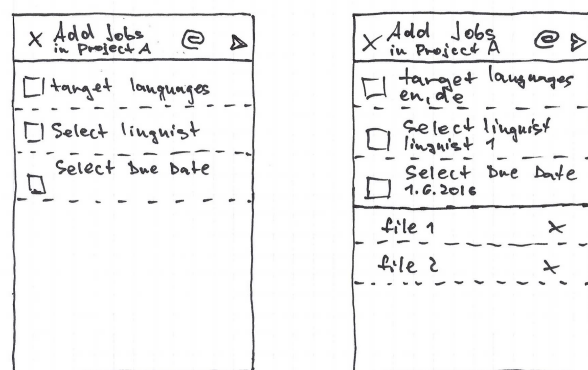 X Add Jobs
in Project A
target languages
Select linguist
Select Due Date
X Add Jobs
in Project A
target languages
en, de
Select linguist
linguist 1
Select Due Date
1.6.2016
file 1 X
file 2 X